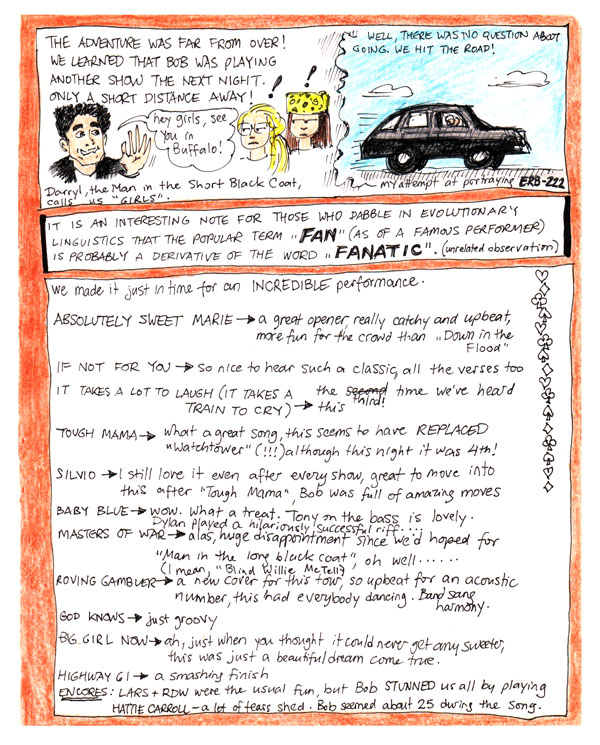 THE ADVENTURE WAS FAR FROM OVER!
WE LEARNED THAT BOB WAS PLAYING
ANOTHER SHOW THE NEXT NIGHT.
ONLY A SHORT DISTANCE AWAY!
! !
hey girls, see
you in
Buffalo!
Darryl, the Man in the Short Black Coat,
calls us "GIRLS".
WELL, THERE WAS NO QUESTION ABOUT
GOING. WE HIT THE ROAD!
my attempt at portraying ERB-222
IT IS AN INTERESTING NOTE FOR THOSE WHO DABBLE IN EVOLUTIONARY
LINGUISTICS THAT THE POPULAR TERM "FAN" (AS OF A FAMOUS PERFORMER)
IS PROBABLY A DERIVATIVE OF THE WORD "FANATIC". (unrelated observation)
we made it just in time for an INCREDIBLE performance.
ABSOLUTELY SWEET MARIE → a great opener, really catchy and upbeat,
more fun for the crowd than "Down in the
Flood"
IF NOT FOR YOU → so nice to hear such a classic, all the verses too
IT TAKES A LOT TO LAUGH (IT TAKES A the second time we've heard
TRAIN TO CRY) → this third!
TOUGH MAMA → What a great song, this seems to have REPLACED
"Watchtower" (!!!) although this night it was 4th!
SILVIO → I still love it even after every show, great to move into
this after "Tough Mama", Bob was full of amazing moves
BABY BLUE → wow. What a treat. Tony on the bass is lovely.
Dylan played a hilariously successful riff....
MASTERS OF WAR → alas, huge disappointment since we'd hoped for
"Man in the long black coat", oh well......
(I mean, "Blind Willie McTell")
ROVING GAMBLER → a new cover for this tour, so upbeat for an acoustic
number, this had everybody dancing. Band sang
harmony.
GOD KNOWS → just groovy
BIG GIRL NOW → ah, just when you thought it could never get any sweeter,
this was just a beautiful dream come true.
HIGHWAY 61 → a smashing finish
ENCORES: LARS + RDW were the usual fun, but Bob STUNNED us all by playing
HATTIE CARROLL – a lot of tears shed. Bob seemed about 25 during the song.